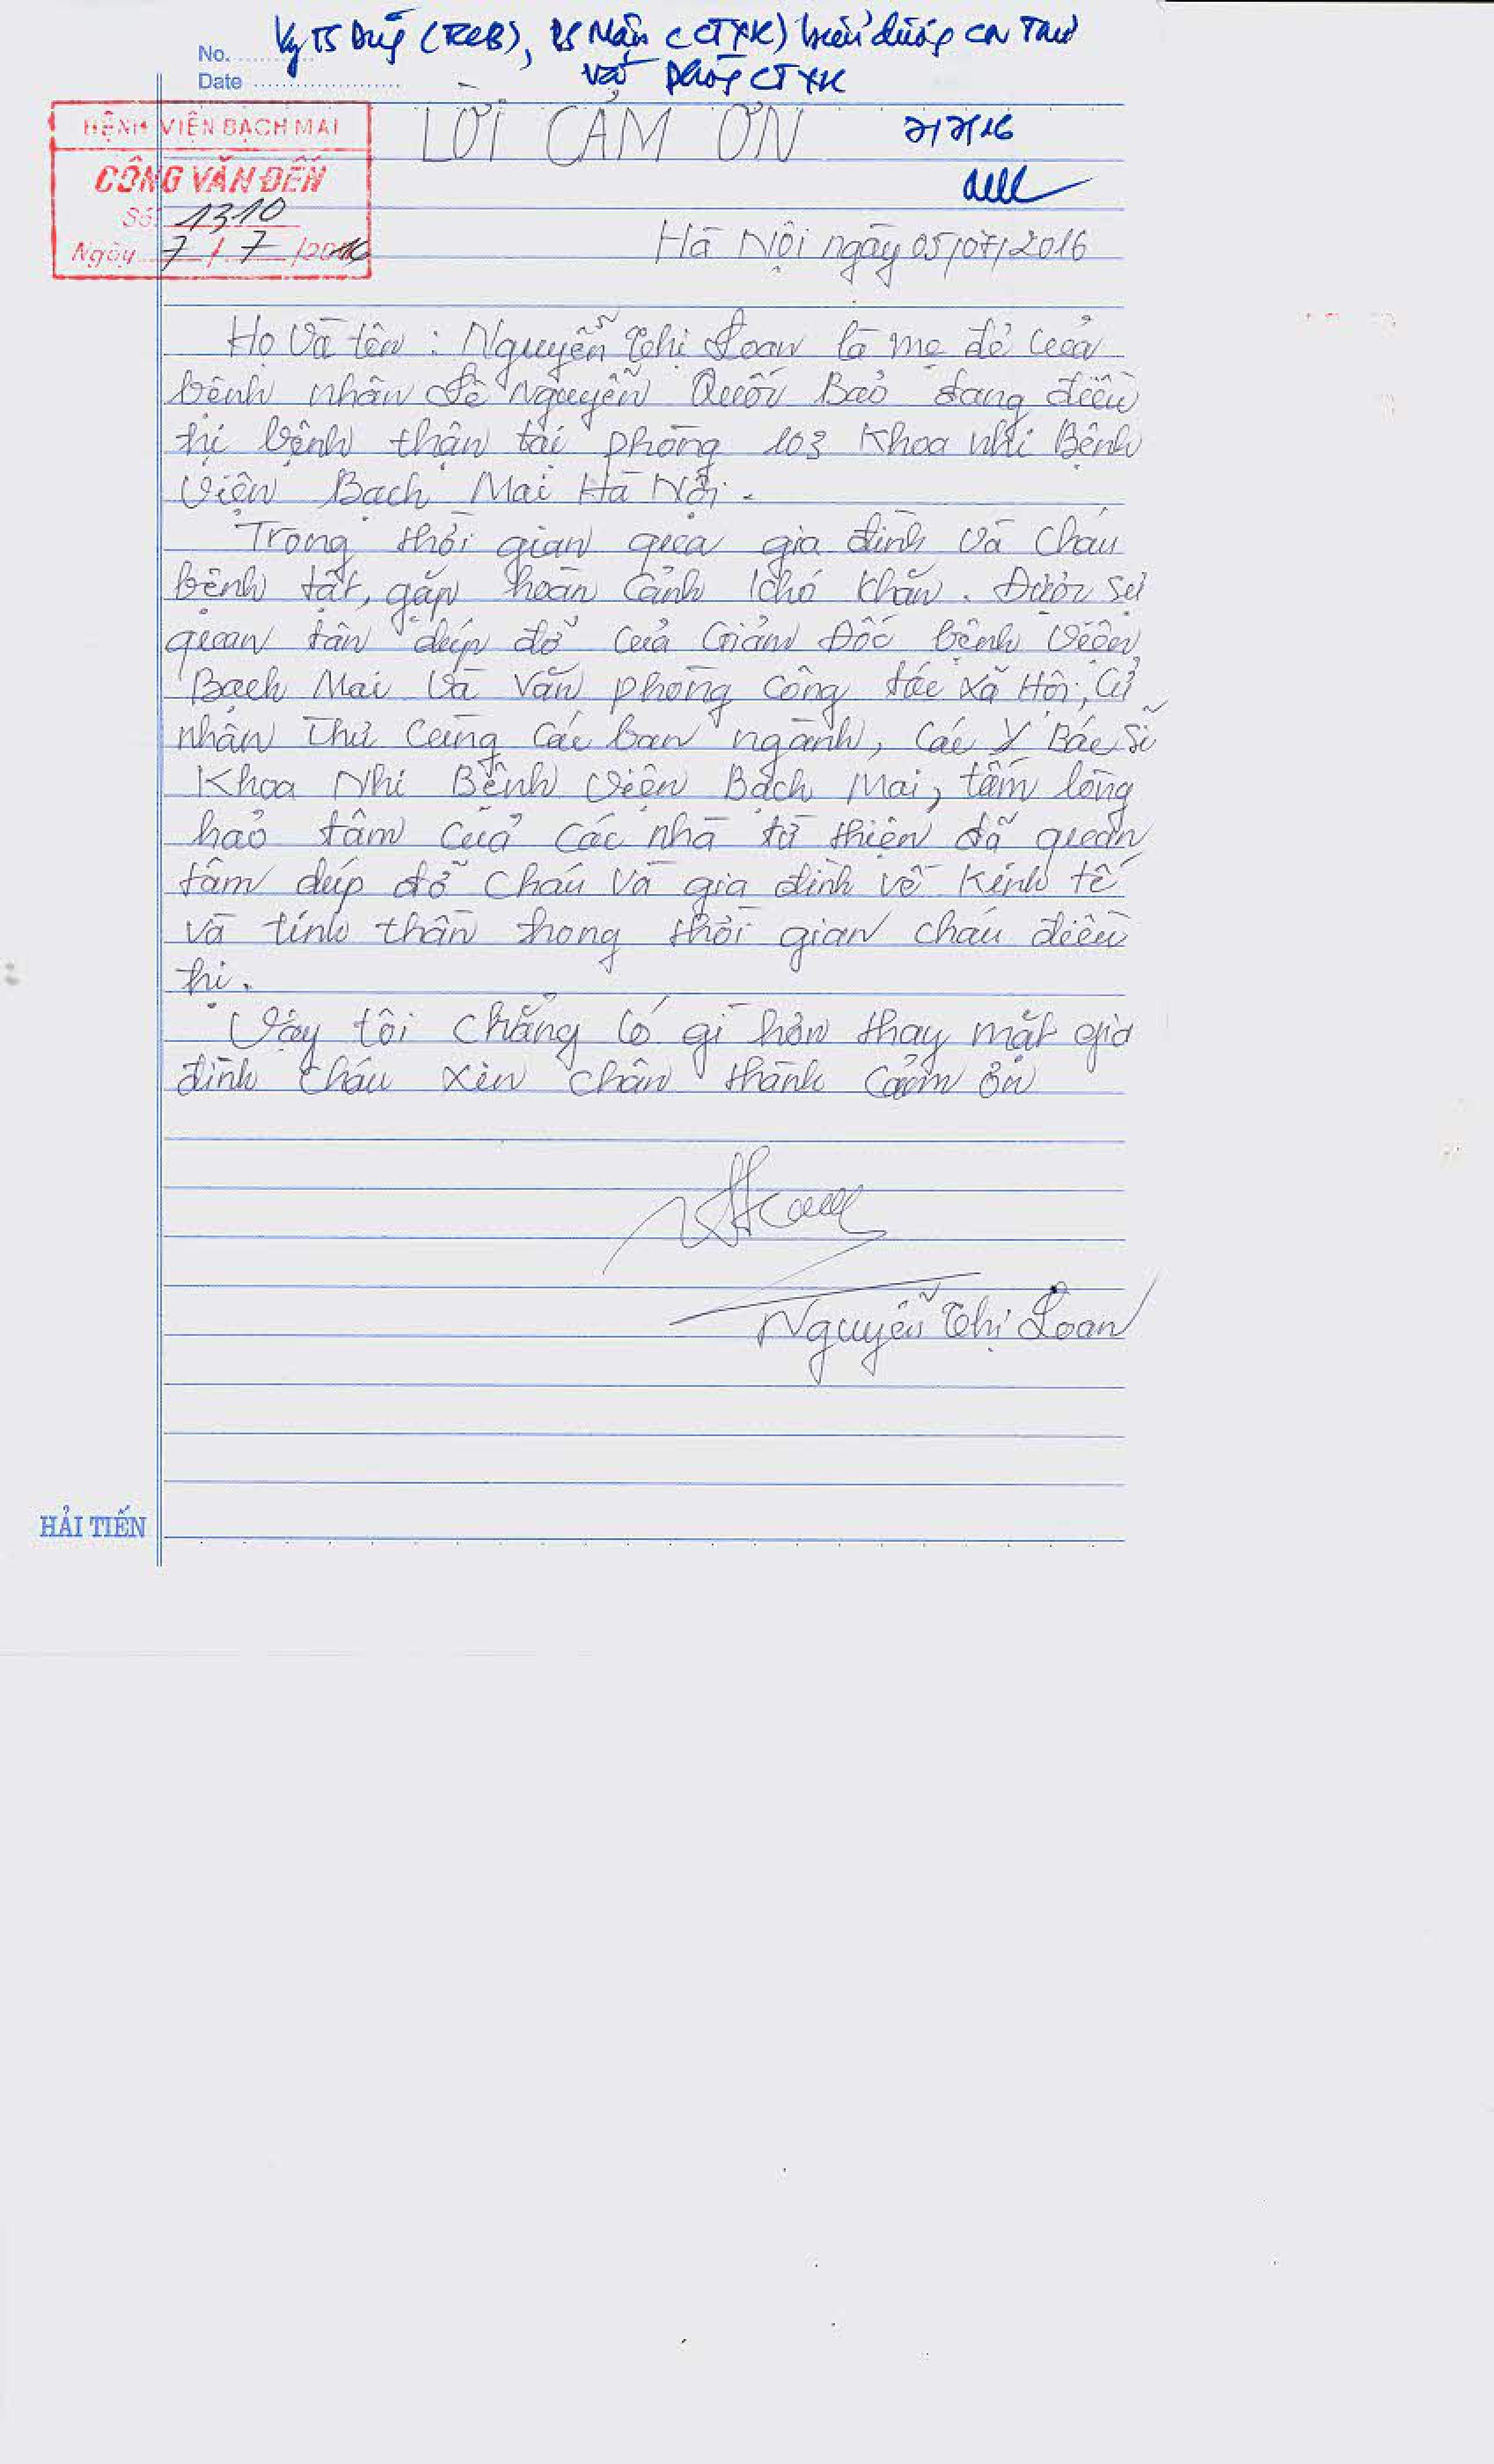 No.
Date
BỆNH VIỆN BẠCH MAI
CÔNG VĂN ĐẾN
Số: 1310
Ngày 7/7/2016
(TCCB), CN Thư
và phòng CTXH
7/7/16
LỜI CẢM ƠN
Hà Nội ngày 05/07/2016
Họ và tên : Nguyễn Thị Loan là mẹ đẻ của
bệnh nhân Lê Nguyễn Quốc Bảo đang điều
trị bệnh thận tại phòng 103 Khoa nhi Bệnh
viện Bạch Mai Hà Nội.
Trong thời gian qua gia đình và cháu
bệnh tật, gặp hoàn cảnh khó khăn. Được sự
quan tân dúp đỡ của Giám Đốc bệnh viện
Bạch Mai và văn phòng công tác xã Hội, Cử
nhân Thư cùng các ban ngành, các Y Bác Sĩ
Khoa Nhi Bệnh viện Bạch Mai, tấm lòng
hảo tâm của các nhà từ thiện đã quan
tâm dúp đỡ cháu và gia đình về kinh tế
và tinh thần trong thời gian cháu điều
trị.
Vậy tôi chẳng có gì hơn thay mặt gia
đình cháu xin chân thành cảm ơn
Nguyễn Thị Loan
HẢI TIẾN